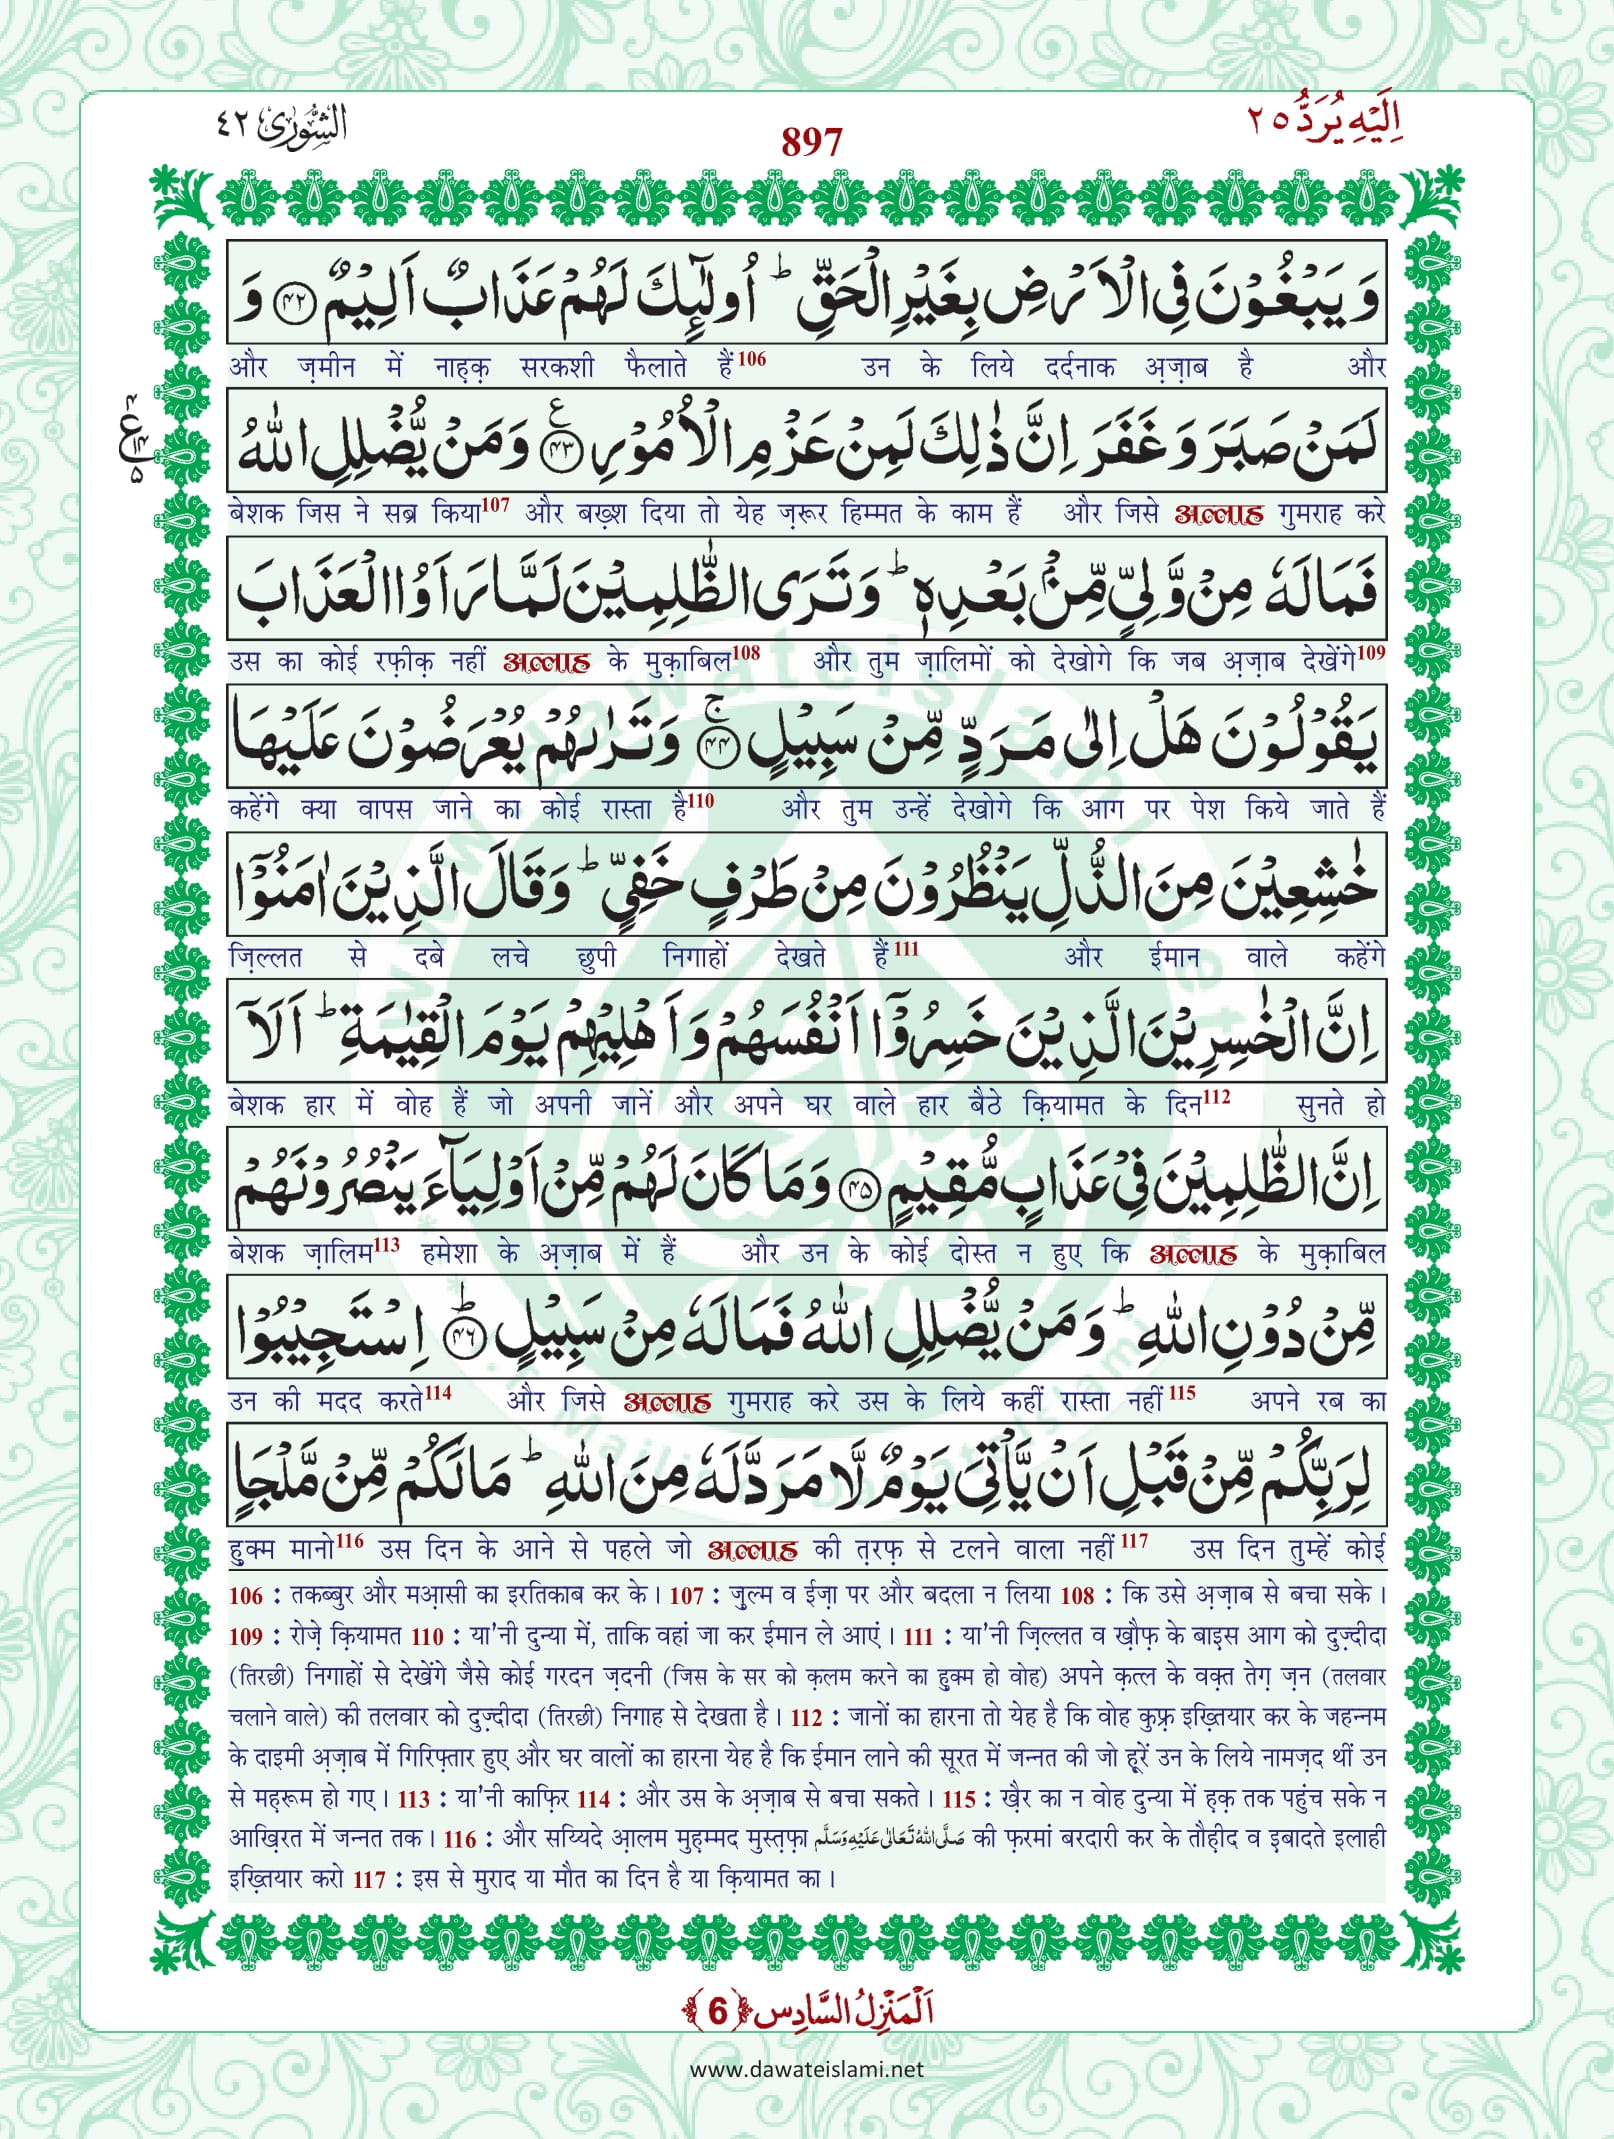 اِلَيْهِ يُرَدُّ ٢٥
897
الشُّوْرٰى ٤٢
وَ يَبْغُوْنَ فِى الْاَرْضِ بِغَيْرِ الْحَقِّ ؕ اُولٰٓىٕكَ لَهُمْ عَذَابٌ اَلِيْمٌ ﴿۴۲﴾ وَ
और ज़मीन में नाह़क़ सरकशी फैलाते हैं106 उन के लिये दर्दनाक अ़ज़ाब है और
لَمَنْ صَبَرَ وَ غَفَرَ اِنَّ ذٰلِكَ لَمِنْ عَزْمِ الْاُمُوْرِ ﴿۴۳﴾ ع وَ مَنْ یُّضْلِلِ اللّٰهُ
बेशक जिस ने सब्र किया107 और बख़्श दिया तो येह ज़रूर हिम्मत के काम हैं और जिसे अल्लाह गुमराह करे
فَمَا لَهٗ مِنْ وَّلِیٍّ مِّنْۢ بَعْدِهٖ ؕ وَ تَرَى الظّٰلِمِیْنَ لَمَّا رَاَوُا الْعَذَابَ
उस का कोई रफ़ीक़ नहीं अल्लाह के मुक़ाबिल108 और तुम ज़ालिमों को देखोगे कि जब अ़ज़ाब देखेंगे109
یَقُوْلُوْنَ هَلْ اِلٰى مَرَدٍّ مِّنْ سَبِیْلٍ ﴿۴۴﴾ ج وَ تَرٰىهُمْ یُعْرَضُوْنَ عَلَیْهَا
कहेंगे क्या वापस जाने का कोई रास्ता है110 और तुम उन्हें देखोगे कि आग पर पेश किये जाते हैं
خٰشِعِیْنَ مِنَ الذُّلِّ یَنْظُرُوْنَ مِنْ طَرْفٍ خَفِیٍّ ؕ وَ قَالَ الَّذِیْنَ اٰمَنُوْۤا
ज़िल्लत से दबे लचे छुपी निगाहों देखते हैं111 और ईमान वाले कहेंगे
اِنَّ الْخٰسِرِیْنَ الَّذِیْنَ خَسِرُوْۤا اَنْفُسَهُمْ وَ اَهْلِیْهِمْ یَوْمَ الْقِیٰمَةِ ؕ اَلَاۤ
बेशक हार में वोह हैं जो अपनी जानें और अपने घर वाले हार बैठे क़ियामत के दिन112 सुनते हो
اِنَّ الظّٰلِمِیْنَ فِیْ عَذَابٍ مُّقِیْمٍ ﴿۴۵﴾ وَ مَا كَانَ لَهُمْ مِّنْ اَوْلِیَآءَ یَنْصُرُوْنَهُمْ
बेशक ज़ालिम113 हमेशा के अ़ज़ाब में हैं और उन के कोई दोस्त न हुए कि अल्लाह के मुक़ाबिल
مِّنْ دُوْنِ اللّٰهِ ؕ وَ مَنْ یُّضْلِلِ اللّٰهُ فَمَا لَهٗ مِنْ سَبِیْلٍ ﴿۴۶﴾ؕ اِسْتَجِیْبُوْا
उन की मदद करते114 और जिसे अल्लाह गुमराह करे उस के लिये कहीं रास्ता नहीं115 अपने रब का
لِرَبِّكُمْ مِّنْ قَبْلِ اَنْ یَّاْتِیَ یَوْمٌ لَّا مَرَدَّ لَهٗ مِنَ اللّٰهِ ؕ مَا لَكُمْ مِّنْ مَّلْجَاٍ
हुक्म मानो116 उस दिन के आने से पहले जो अल्लाह की त़रफ़ से टलने वाला नहीं117 उस दिन तुम्हें कोई
106 : तकब्बुर और मआ़सी का इरतिकाब कर के। 107 : ज़ुल्म व ईज़ा पर और बदला न लिया 108 : कि उसे अ़ज़ाब से बचा सके।
109 : रोज़े क़ियामत 110 : या'नी दुन्या में, ताकि वहां जा कर ईमान ले आएं। 111 : या'नी ज़िल्लत व ख़ौफ़ के बाइस आग को दुज़्दीदा
(तिरछी) निगाहों से देखेंगे जैसे कोई गरदन ज़दनी (जिस के सर को क़लम करने का हुक्म हो वोह) अपने क़त्ल के वक़्त तेग़ ज़न (तलवार
चलाने वाले) की तलवार को दुज़्दीदा (तिरछी) निगाह से देखता है। 112 : जानों का हारना तो येह है कि वोह कुफ़्र इख़्तियार कर के जहन्नम
के दाइमी अ़ज़ाब में गिरिफ़्तार हुए और घर वालों का हारना येह है कि ईमान लाने की सूरत में जन्नत की जो हूरें उन के लिये नामज़द थीं उन
से मह़रूम हो गए। 113 : या'नी काफ़िर 114 : और उस के अ़ज़ाब से बचा सकते। 115 : ख़ैर का न वोह दुन्या में ह़क़ तक पहुंच सके न
आख़िरत में जन्नत तक। 116 : और सय्यिदे आ़लम मुह़म्मद मुस्त़फ़ा صَلَّى اللهُ تَعَالٰى عَلَيْهِ وَسَلَّم की फ़रमां बरदारी कर के तौह़ीद व इ़बादते इलाही
इख़्तियार करो 117 : इस से मुराद या मौत का दिन है या क़ियामत का।
اَلْمَنْزِلُ السَّادِس ﴿6﴾
www.dawateislami.net